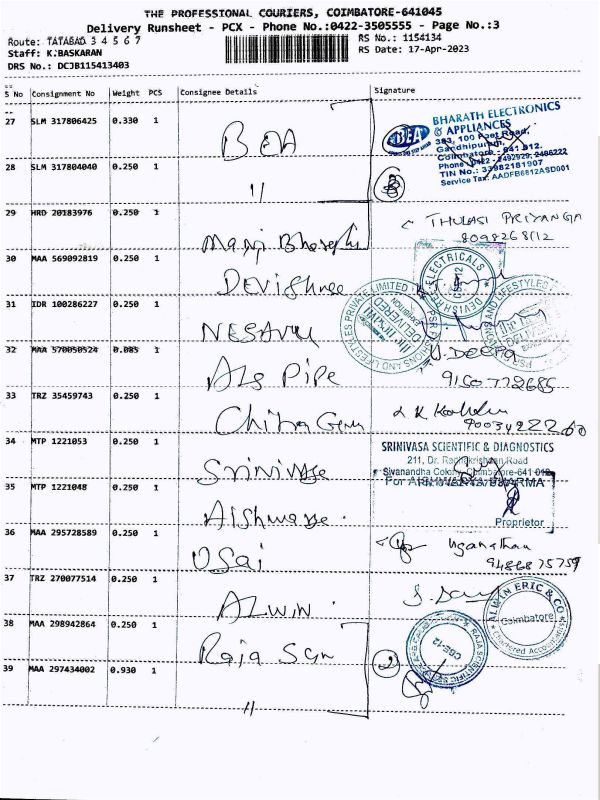 THE PROFESSIONAL COURIERS, COIMBATORE-641045
Delivery Runsheet - PCX - Phone No.:0422-3505555 - Page No.:3
Route: TATABAD 3 4 5 6 7
RS No.: 1154134
Staff: K.BASKARAN
RS Date: 17-Apr-2023
DRS No.: DCJB115413403
S No Consignment No Weight PCS Consignee Details Signature
27 SLM 317806425 0.330 1 BEA
BHARATH ELECTRONICS
& APPLIANCES
BEA
393, 100 Feet Road,
Gandhipuram,
Coimbatore - 641 012.
Phone : 0422 - 2492929, 2486222
TIN No.: 33982181907
Service Tax: AADFB6812ASD001
28 SLM 317804040 0.250 1 "
29 HRD 20183976 0.250 1
THULASI PRIYANGA
8098268112
30 MAA 569092819 0.250 1 DEVIShree
ELECTRICALS
31 IDR 100286227 0.250 1 NESAVU
DELIVERED
32 MAA 570050524 0.085 1 Als PIPe
U.DEEPA
33 TRZ 35459743 0.250 1
34 MTP 1221053 0.250 1 Srinivase
SRINIVASA SCIENTIFIC & DIAGNOSTICS
211, Dr. Radhakrishnan Road
Sivanandha Colony, Coimbatore-641 012
35 MTP 1221048 0.250 1
For AISHWARYA PHARMA
Proprietor
36 MAA 295728589 0.250 1 USai
37 TRZ 270077514 0.250 1 ALWIN.
ALWAN ERIC & CO
Coimbatore
Chartered Accountants
38 MAA 298942864 0.250 1 Raja Scn
CBE-12
39 MAA 297434002 0.930 1 "
2